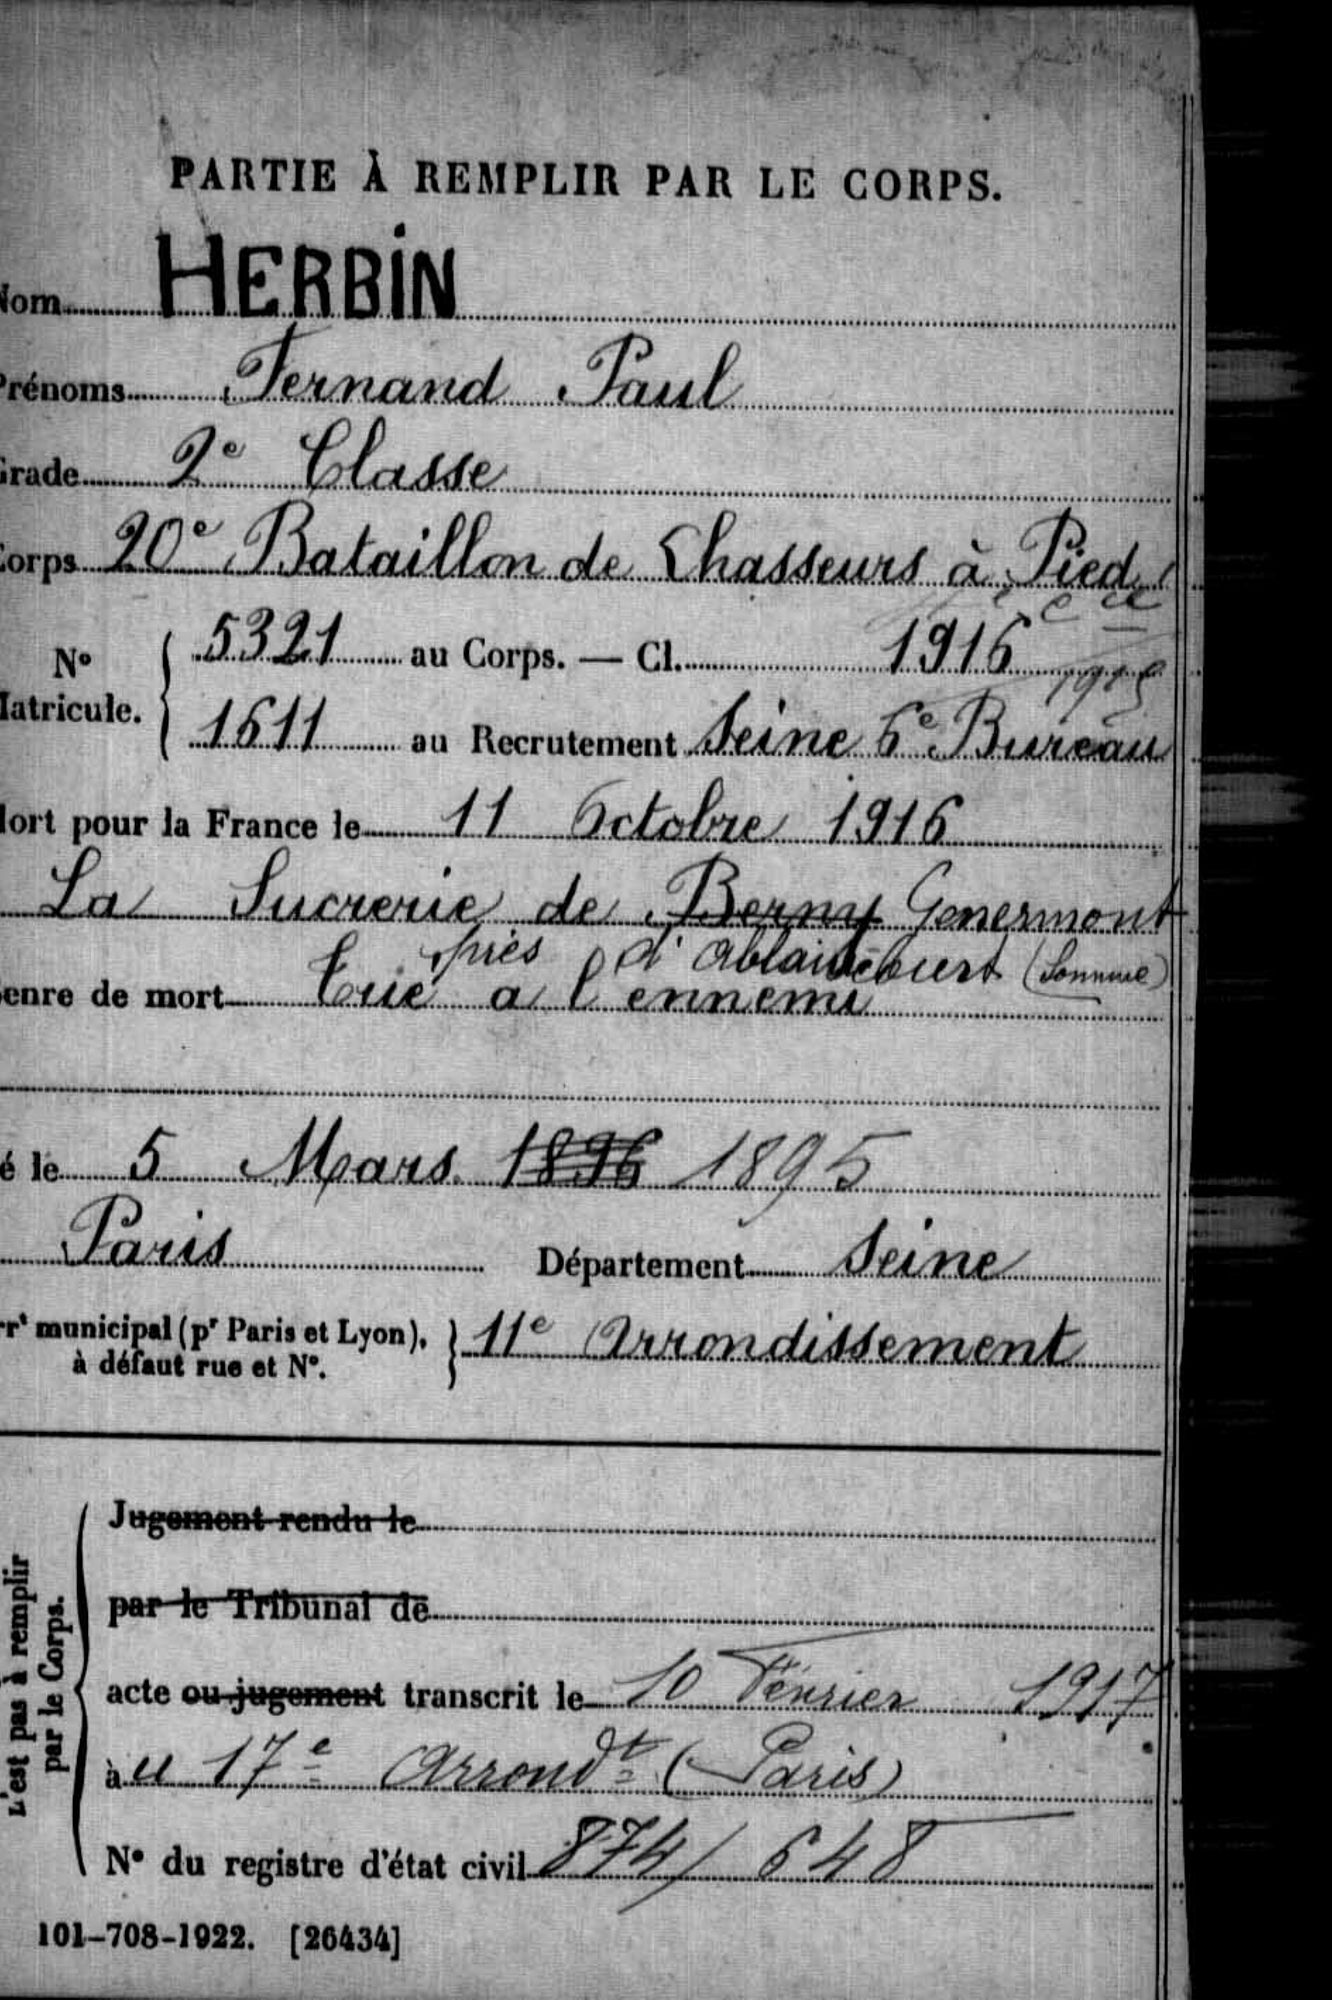 PARTIE À REMPLIR PAR LE CORPS.
Nom HERBIN
Prénoms Fernand Paul
Grade 2e Classe
Corps 20e Bataillon de Chasseurs à Pied
No Matricule. { 5321 au Corps. — Cl. 1916 1915
1611 au Recrutement Seine 6e Bureau
Mort pour la France le 11 Octobre 1916
La Sucrerie de Berny Genermont
près d'Ablaincourt (Somme)
Genre de mort Tué a l'ennemi
é le 5 Mars 1896 1895
Paris Département Seine
rrt municipal (pr Paris et Lyon), } 11e Arrondissement
à défaut rue et No.
L'est pas à remplir
par le Corps.
Jugement rendu le
par le Tribunal de
acte ou jugement transcrit le 10 Février 1917
à u 17e Arrondt (Paris)
No du registre d'état civil 874/648
101-708-1922. [26434]